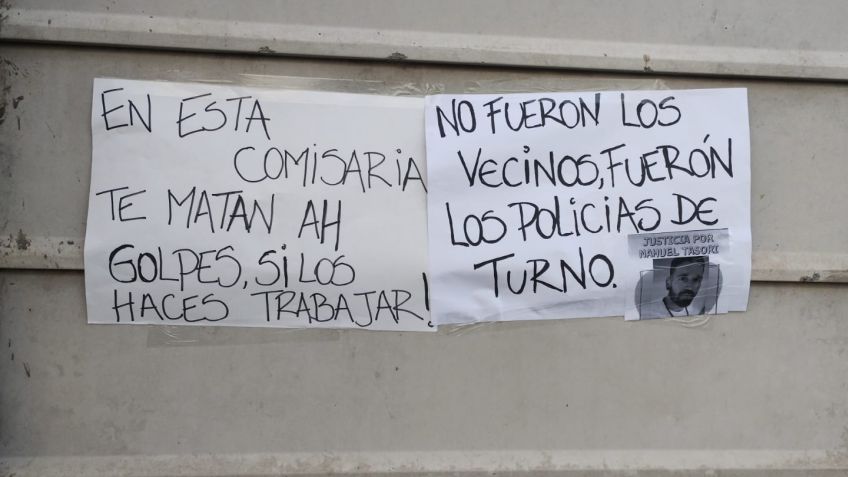 EN ESTA
COMISARIA
TE MATAN AH
GOLPES, SI LOS
HACES TRABAJAR!
NO FUERON LOS
VECINOS, FUERÓN
LOS POLICIAS DE
TURNO.
JUSTICIA POR
MANUEL TASORI